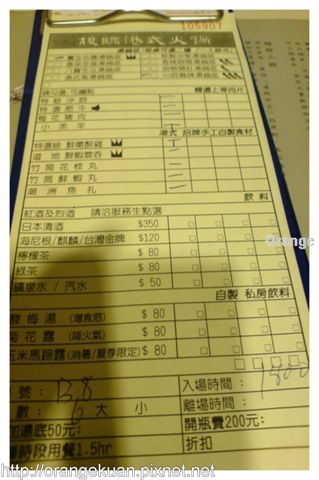 105907
復臨港式火鍋
請勾選 可續點
精選上等肉片
梅花豬肉
小羔羊
港式 招牌手工自製食材
特選級 鮮嫩酥雞
道地 鮮蝦雲吞
竹筒花枝丸
竹筒鮮蝦丸
潮洲魚丸
飲料
紅酒及烈酒 請洽服務生點選
日本清酒 $350
海尼根/麒麟/台灣金牌 $120
檸檬茶 $80
綠茶 $80
礦泉水/汽水 $50
自製 私房飲料
酸梅湯 (增食慾) $80
菊花露 (降火氣) $80
玉米馬蹄露 (消暑/夏季限定) $80
號: B8 入場時間: 1800
數: 6 大 小 離場時間:
加湯底50元: 開瓶費200元:
時段用餐1.5hr 折扣
Orange
http://orangekuan.pixnet.net